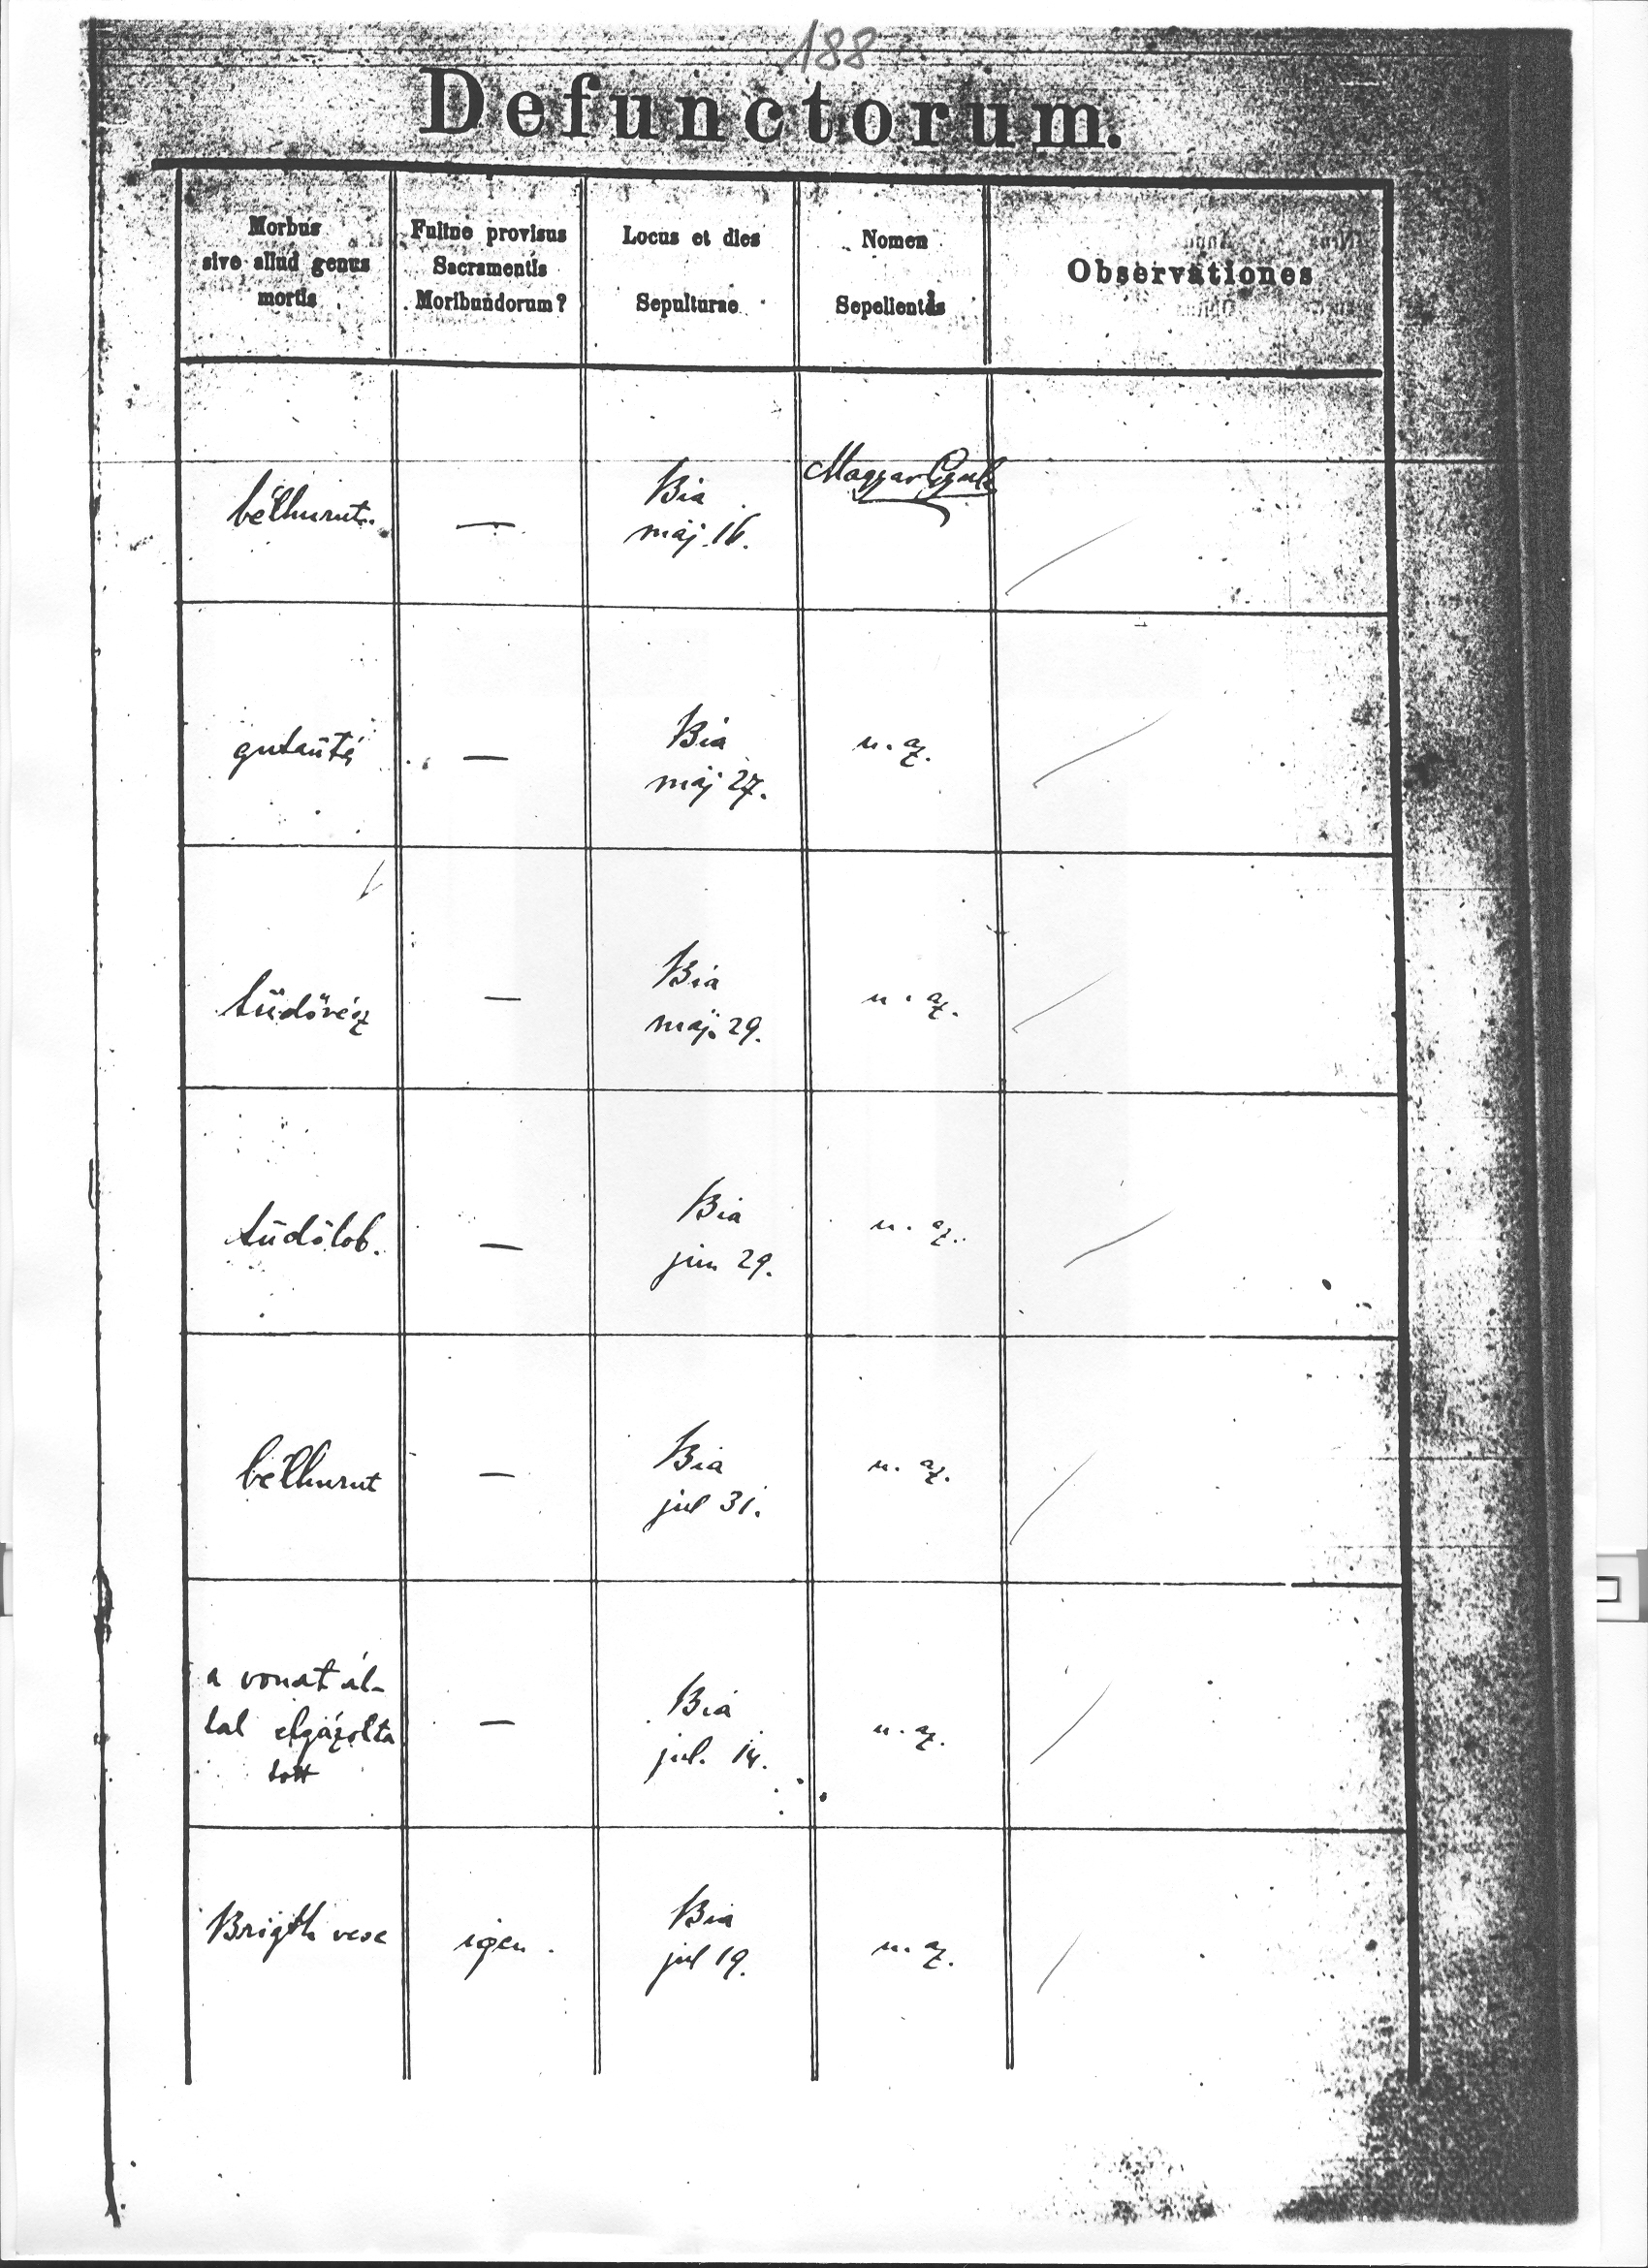 188
Defunctorum.
Morbus
sive aliud genus
mortis
Fuitne provisus
Sacramentis
Moribundorum?
Locus et dies
Sepulturae
Nomen
Sepelientis
Observationes
bélhurut.
—
Bia
máj. 16.
Magyar Gyula
gutaütés
—
Bia
máj 27.
u. az.
tüdővész
—
Bia
máj. 29.
u. az.
tüdőlob.
—
Bia
jun 29.
u. az.
bélhurut
—
Bia
jul 31.
u. az.
a vonat ál-
tal elgázolta
tott
—
Bia
jul. 14.
u. az.
Brigth vese
igen.
Bia
jul 19.
u. az.